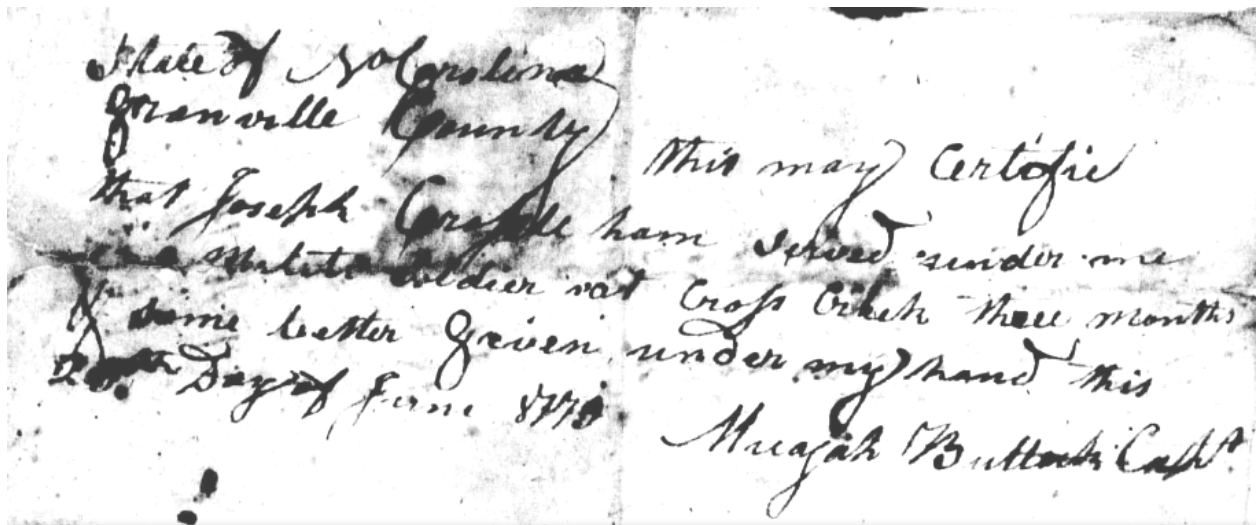 State of No Carolina
Granville County
this may Certefie
that Joseph ham Served under me
a Milita Soldier at Cross Creek three months
& some better Given under my hand this
Day of June
Micajah Bullock Capt